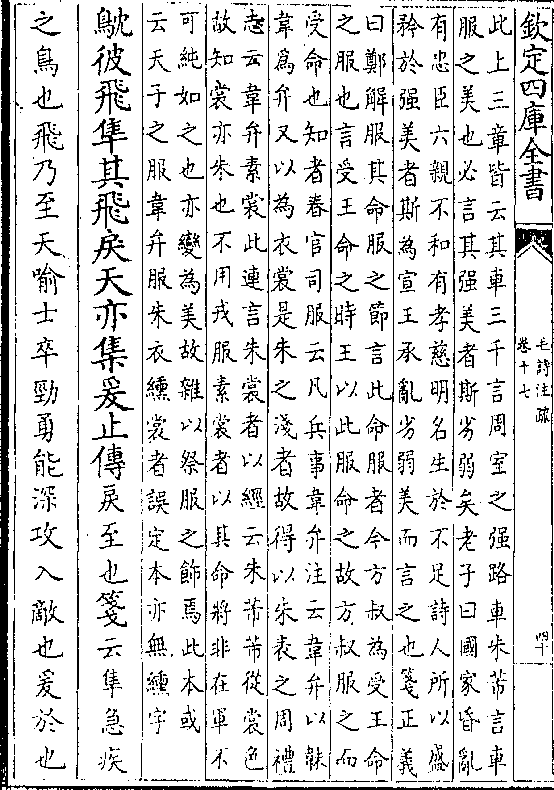 欽定四庫全書
毛詩注疏
卷十七
四十
此上三章皆云其車三千言周室之强路車朱芾言車
服之美也必言其强美者斯劣弱矣老子曰國家昏亂
有忠臣六親不和有孝慈明名生於不足詩人所以盛
矜於强美者斯為宣王承亂劣弱美而言之也箋正義
曰鄭解服其命服之節言此命服者今方叔為受王命
之服也言受王命之時王以此服命之故方叔服之而
受命也知者春官司服云凡兵事韋弁注云韋弁以韎
韋爲弁又以為衣裳是朱之淺者故得以朱表之周禮
志云韋弁素裳此連言朱裳者以經云朱芾芾從裳色
故知裳亦朱也不用戎服素裳者以其命將非在軍不
可純如之也亦變為美故雜以祭服之飾焉此本或
云天子之服韋弁服朱衣纁裳者誤定本亦無纁字
鴥彼飛隼其飛戾天亦集爰止傳戾至也箋云隼急疾
之鳥也飛乃至天喻士卒勁勇能深攻入敵也爰於也